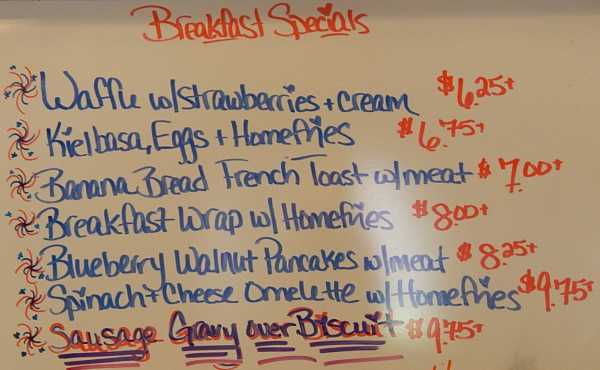 Breakfast Specials
Waffle w/strawberries + cream $6.25+
Kielbasa, Eggs + Homefries $6.75+
Banana Bread French Toast w/meat $7.00+
Breakfast Wrap w/ Homefries $8.00+
Blueberry Walnut Pancakes w/meat $8.25+
Spinach + Cheese Omelette w/ Homefries $9.75+
Sausage Gravy over Biscuit $9.75+